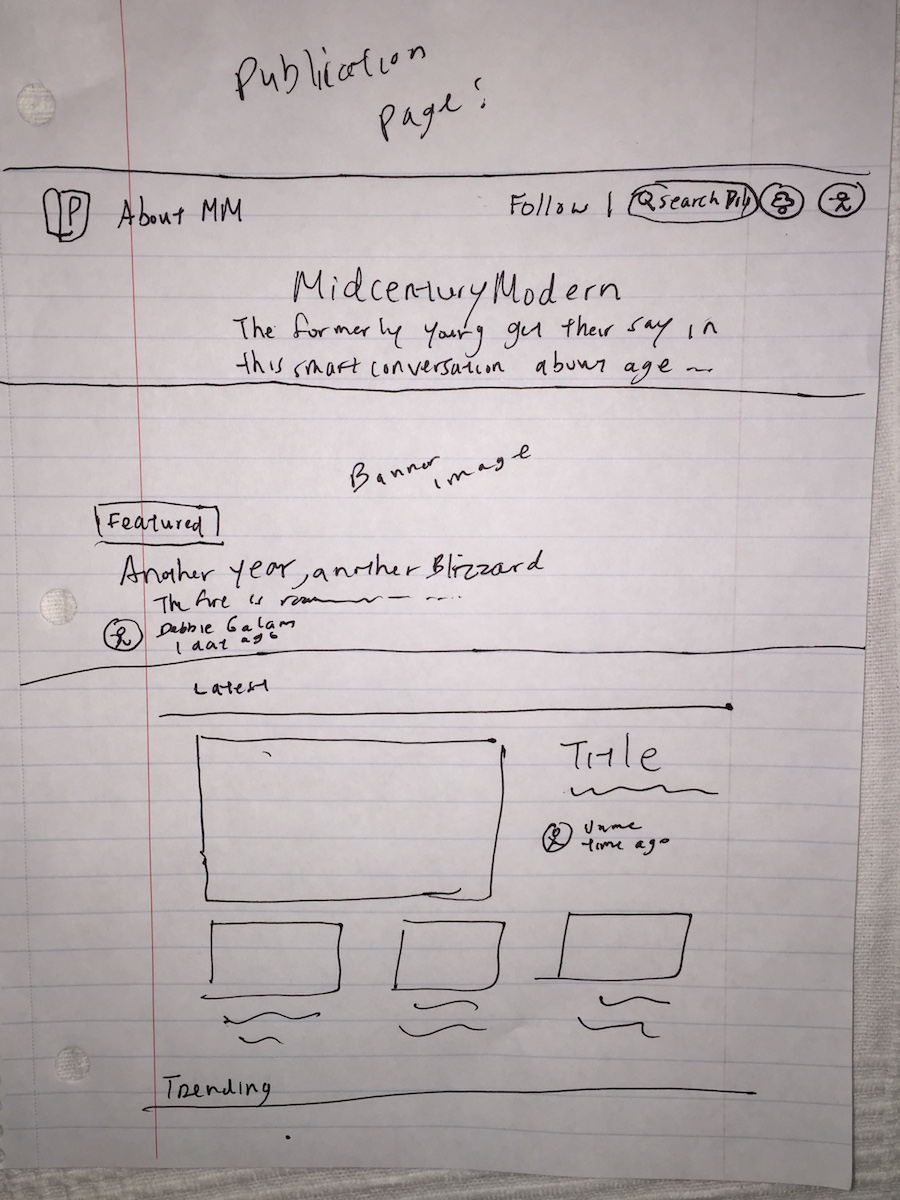 Publication
Page:
P About MM Follow | search
Midcentury Modern
The formerly young get their say in
this smart conversation about age
Banner
image
Featured
Another year, another Blizzard
The fire is
Debbie Galam
1 dat ago
Latest
Title
Uname
time ago
Trending